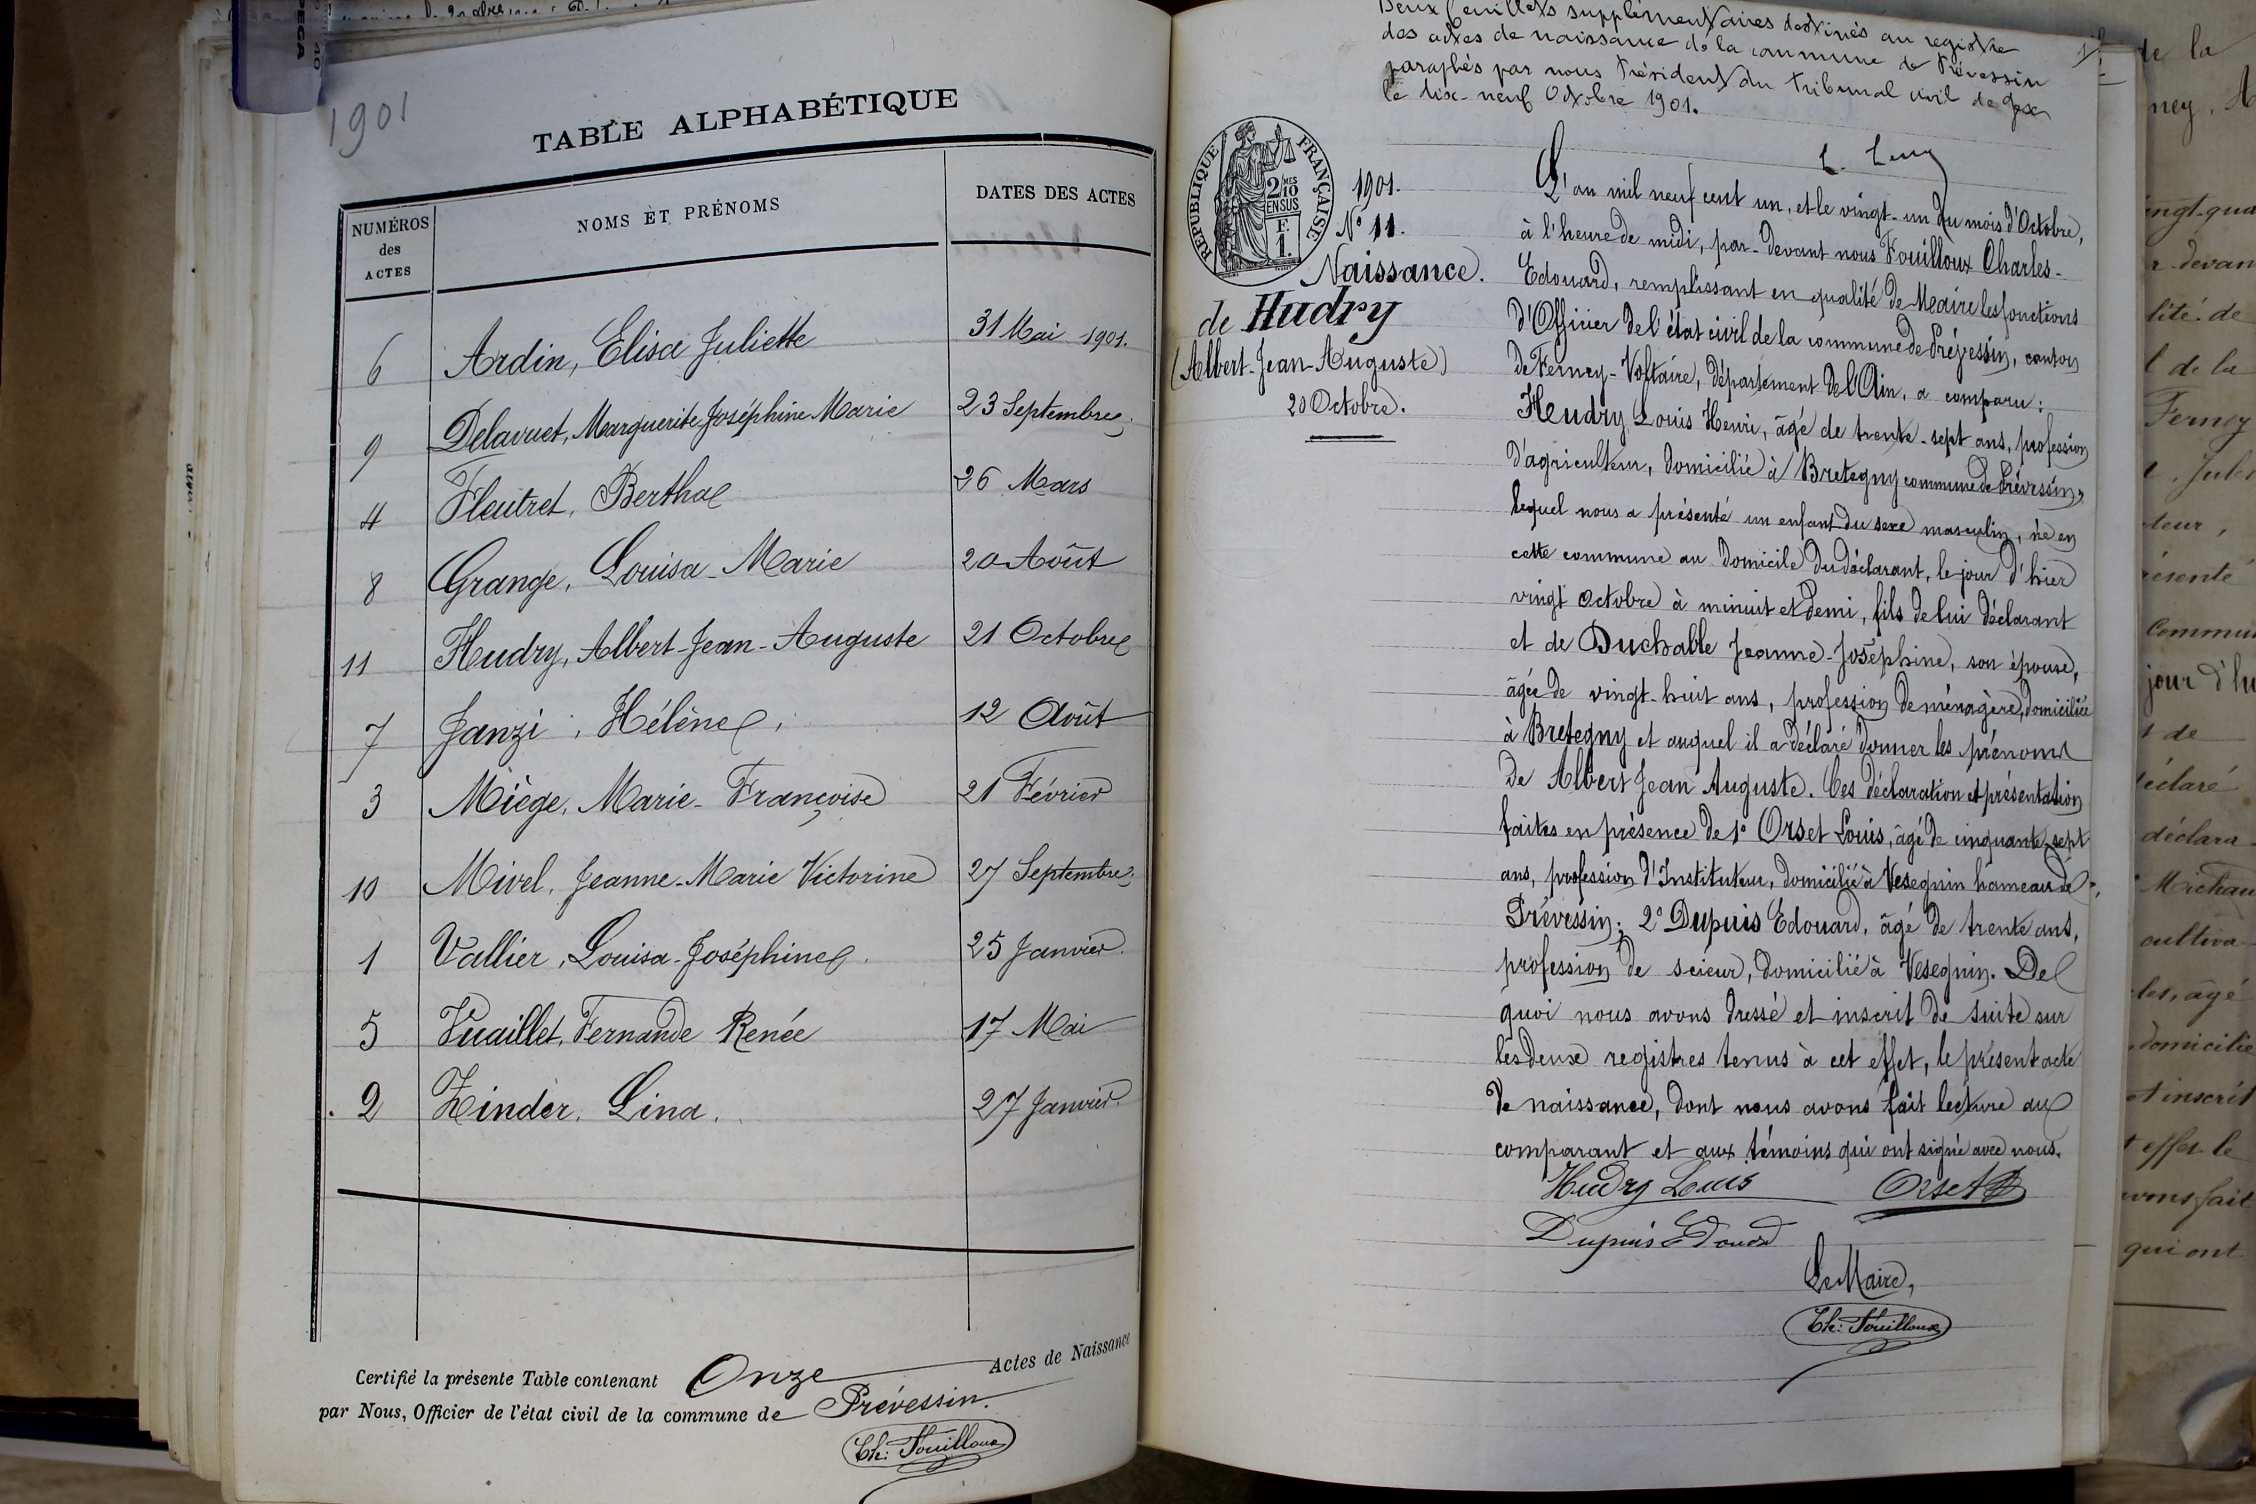 1901
TABLE ALPHABÉTIQUE
NUMÉROS des ACTES
NOMS ET PRÉNOMS
DATES DES ACTES
6 Ardin, Elisa Juliette 31 Mai 1901.
9 Delavuet, Marguerite Joséphine Marie 23 Septembre
4 Fleutret, Bertha 26 Mars
8 Grange, Louisa-Marie 20 Août
11 Hudry, Albert-Jean-Auguste 21 Octobre
7 Janzi, Hélène 12 Août
3 Miège, Marie-Françoise 21 Février
10 Mivel, Jeanne-Marie Victorine 27 Septembre
1 Vallier, Louisa-Joséphine 25 Janvier
5 Vuaillet, Fernande Renée 17 Mai
2 Zinder, Lina. 27 Janvier
Certifié la présente Table contenant Onze Actes de Naissance
par Nous, Officier de l'état civil de la commune de Prévessin.
Ch: Fouilloux
Deux feuillets supplémentaires destinés au registre
des actes de naissance de la commune de Prévessin
paraphés par nous Président du Tribunal civil de Gex
le dix-neuf Octobre 1901.
RÉPUBLIQUE FRANÇAISE
2 MES
10
EN SUS
F.
1.
1901.
N° 11.
Naissance.
de Hudry
(Albert-Jean-Auguste)
20 Octobre.
L'an mil neuf cent un, et le vingt-un du mois d'Octobre,
à l'heure de midi, par-devant nous Fouilloux Charles-
Edouard, remplissant en qualité de Maire les fonctions
d'Officier de l'état civil de la commune de Prévessin, canton
de Ferney-Voltaire, département de l'Ain, a comparu:
Hudry Louis Henri, âgé de trente-sept ans, profession
d'agriculteur, domicilié à Bretegny commune de Prévessin,
lequel nous a présenté un enfant du sexe masculin, né en
cette commune au domicile du déclarant, le jour d'hier
vingt octobre à minuit et demi, fils de lui déclarant
et de Duchable Jeanne-Joséphine, son épouse,
âgée de vingt-huit ans, profession de ménagère, domiciliée
à Bretegny et auquel il a déclaré donner les prénoms
de Albert Jean Auguste. Ces déclaration et présentation
faites en présence de 1° Orset Louis, âgé de cinquante-sept
ans, profession d'Instituteur, domicilié à Vesegnin hameau de
Prévessin; 2° Dupuis Edouard, âgé de trente ans,
profession de scieur, domicilié à Vesegnin. De
quoi nous avons dressé et inscrit de suite sur
les deux registres tenus à cet effet, le présent acte
de naissance, dont nous avons fait lecture au
comparant et aux témoins qui ont signé avec nous.
Hudry Louis Orset
Dupuis Edouard
Le Maire,
Ch: Fouilloux